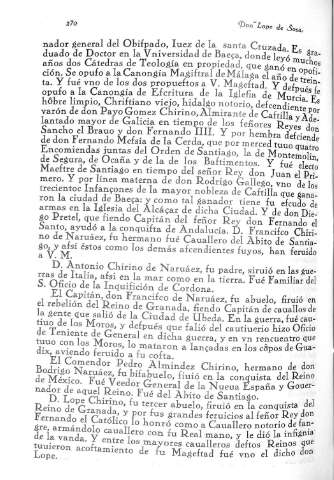 270 Don Lope de Sosa
nador general del Obiſpado, Iuez de la santa Cruzada. Es gra-
duado de Doctor en la Vniversidad de Baeça, donde leyó muchos
años dos Cátedras de Teología en propiedad, que ganó en opoſi-
ción. Se opuſo a la Canongía Magiſtral de Málaga el año de trein-
ta. Y fué vno de los dos propueſtos a V. Mageſtad. Y deſpués ſe
opuſo a la Canongía de Eſcritura de la Igleſia de Murcia. Es
hõbre limpio, Chriſtiano viejo, hidalgo notorio, deſcendiente por
varón de don Payo Gomez Chirino, Almirante de Caſtilla y Ade-
lantado mayor de Galicia en tiempo de los ſeñores Reyes don
Sancho el Brauo y don Fernando IIII. Y por hembra deſciende
de don Fernando Meſsía de la Cerda, que por merced tuuo quatro
Encomiendas juntas del Orden de Santiago, la de Montemolín,
de Segura, de Ocaña y de la de los Baſtimentos. Y fué electo
Maeſtre de Santiago en tiempo del señor Rey don Juan el Pri-
mero. Y por línea materna de don Rodrigo Gallego, vno de los
trecientos Infançones de la mayor nobleza de Caſtilla que gana-
ron la ciudad de Baeça: y como tal ganador tiene ſu eſcudo de
armas en la Igleſia del Alcáçar de dicha Ciudad. Y de don Die-
go Pretel, que ſiendo Capitán del ſeñor Rey don Fernando el
Santo, ayudó a la conquiſta de Andalucía. D. Franciſco Chiri-
no de Naruáez, ſu hermano fué Cauallero del Abito de Santia-
go, y aſsí éſtos como los demás aſcendientes ſuyos, han ſeruido
a V. M.
D. Antonio Chirino de Naruáez, ſu padre, siruió en las gue-
rras de Italia, aſsí en la mar como en la tierra. Fué Familiar del
S. Oficio de la Inquiſición de Cordona.
El Capitán, don Franciſco de Naruáez, ſu abuelo, ſiruió en
el rebelión del Reino de Granada, ſiendo Capitán de cauallos de
la gente que salió de la Ciudad de Ubeda. En la guerra, fué cau-
tiuo de los Moros, y deſpués que ſalió del cautiuerio hizo Oficio
de Teniente de General en dicha guerra, y en vn rencuentro que
tuuo con los Moros, lo mataron a lançadas en los cãpos de Gua-
dix, aviendo ſeruido a ſu coſta.
El Comendor Pedro Almindez Chirino, hermano de don
Rodrigo Naruáez, ſu biſabuelo, ſiuió en la conquista del Reino
de México. Fué Veedor General de la Nueva España y Gouer-
nador de aquel Reino. Fué del Abito de Santiago.
D. Lope Chirino, ſu tercer abuelo, ſiruió en la conquiſta del
Reino de Granada, y por ſus grandes ſeruicios al ſeñor Rey don
Fernando el Católico lo honró como a Cauallero notorio de ſan-
gre, armándolo cauallero con ſu Real mano, y le dió la inſignia
de la vanda. Y entre los mayores caualleros deſtos Reinos que
tuuieron acoſtamiento de ſu Mageſtad fué vno el dicho don
Lope.